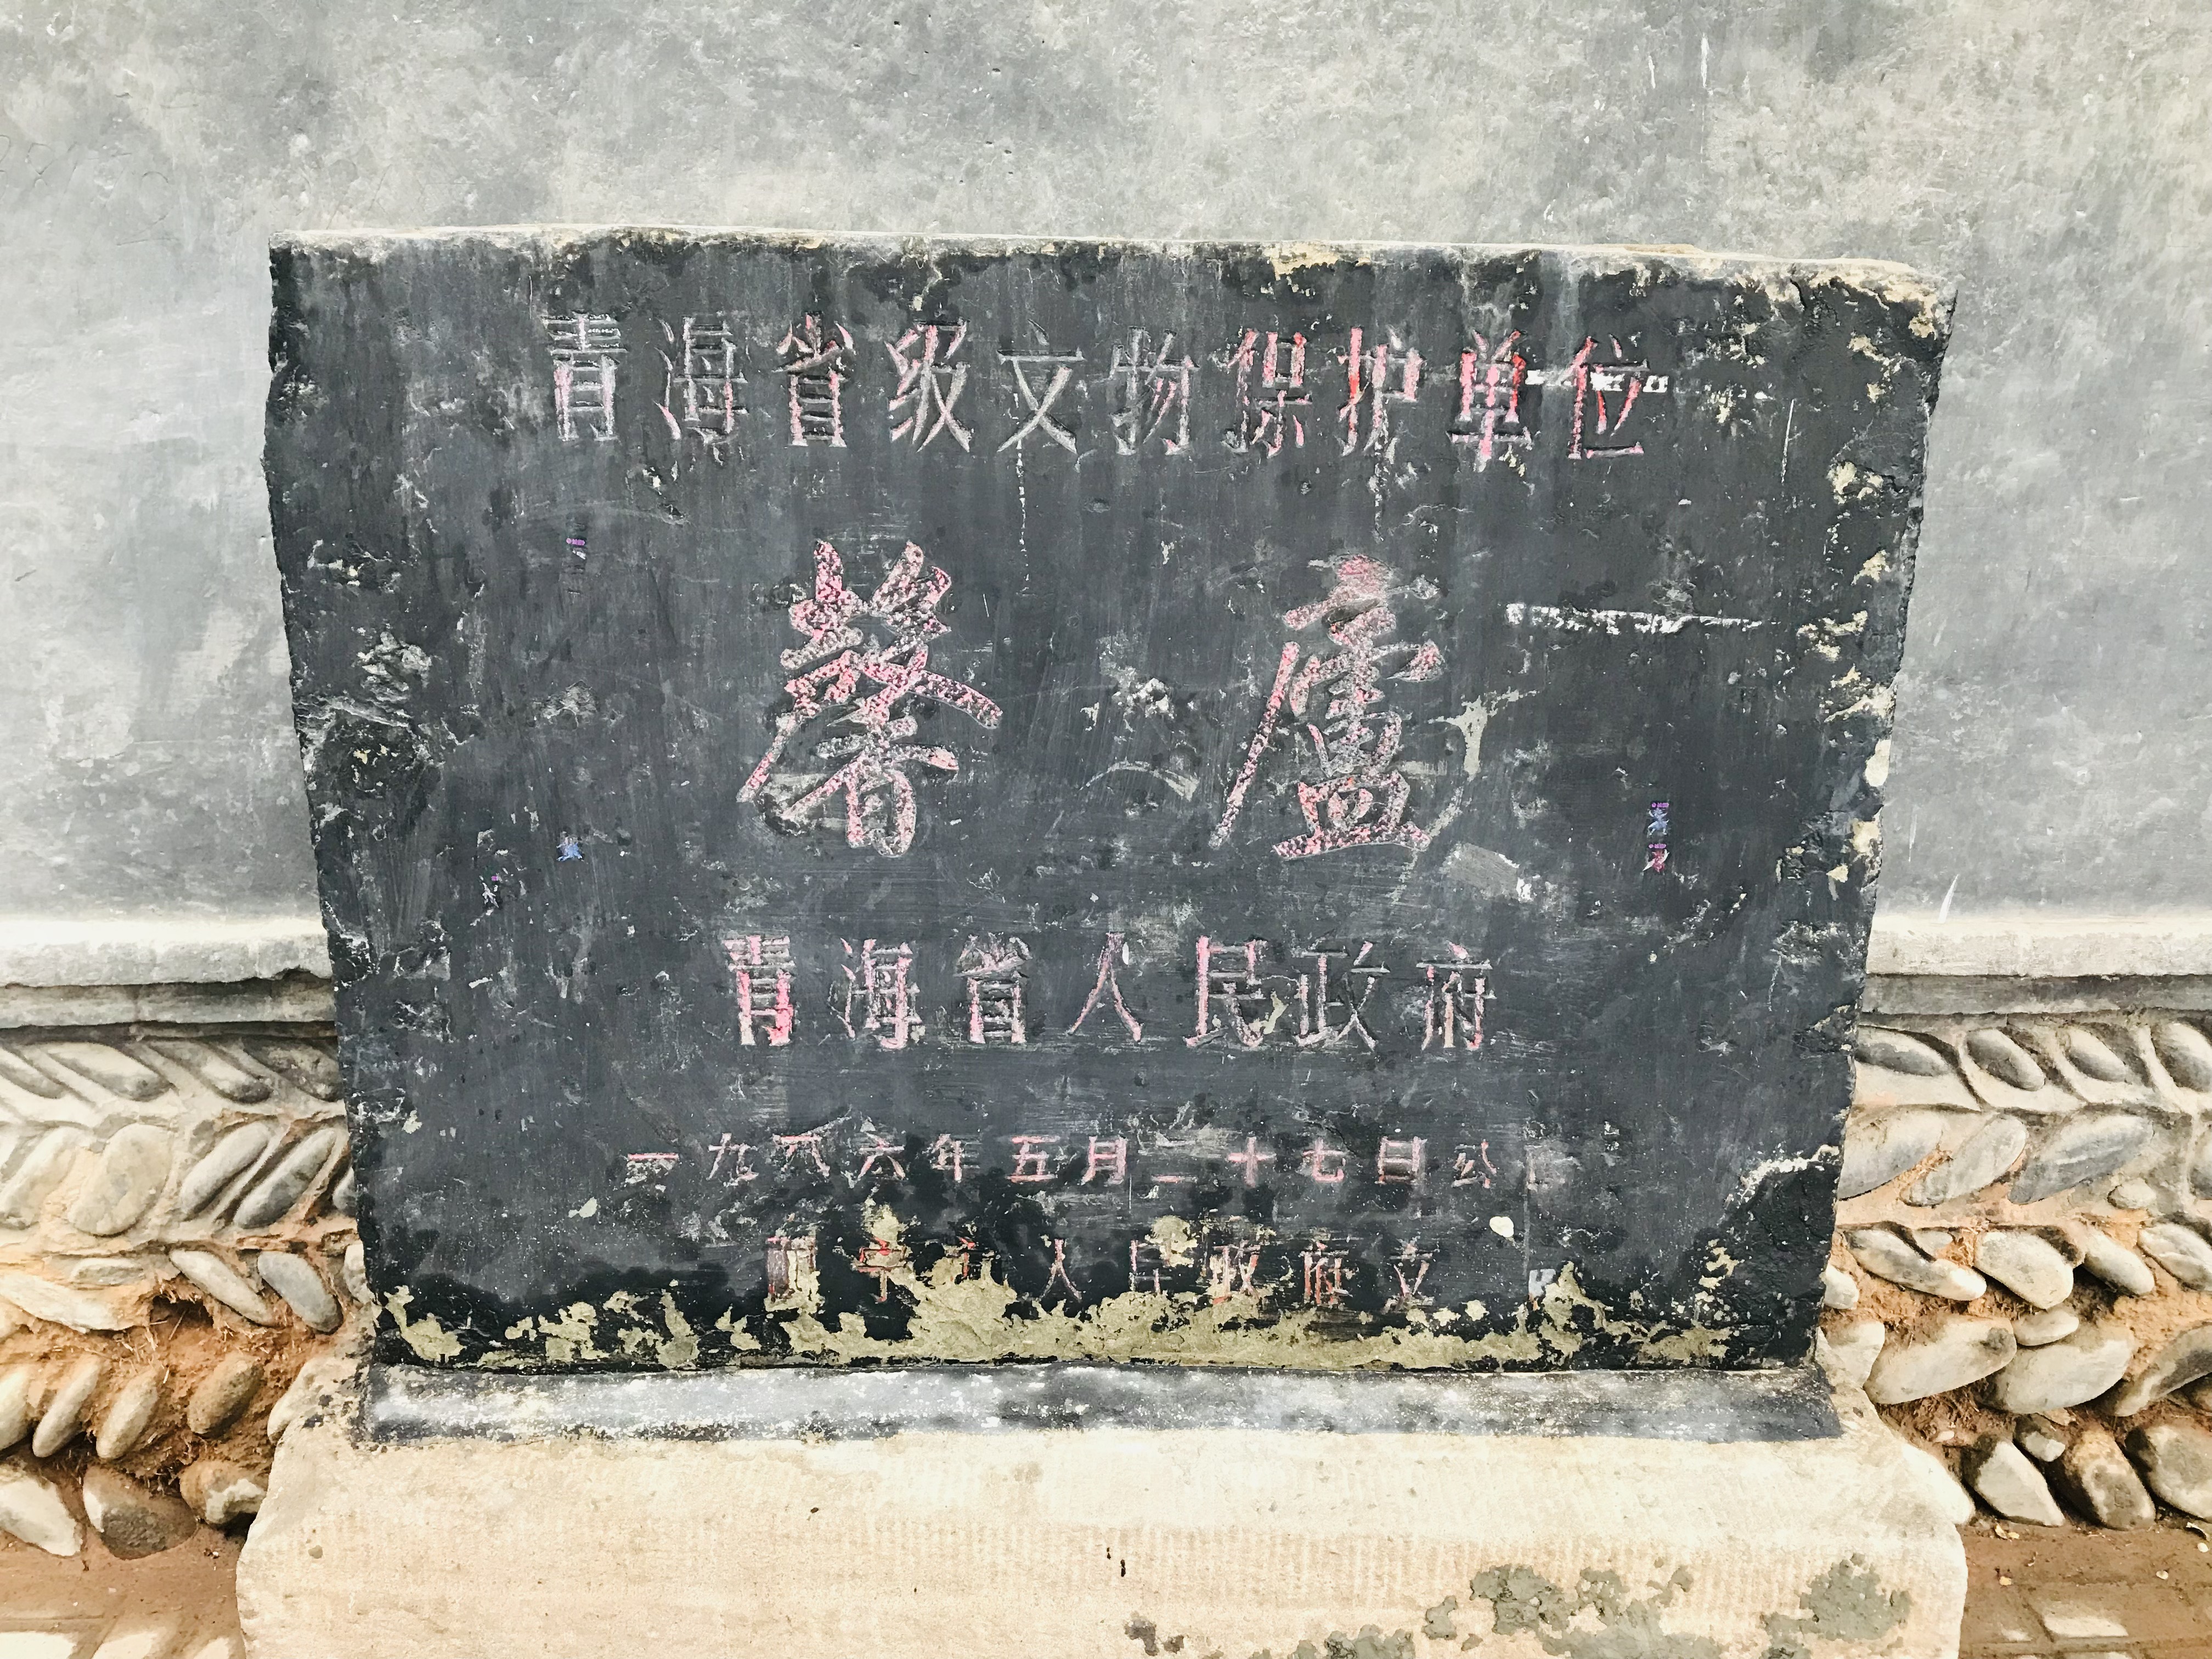 青海省级文物保护单位
馨廬
青海省人民政府
一九八六年五月二十七日公
西宁市人民政府立